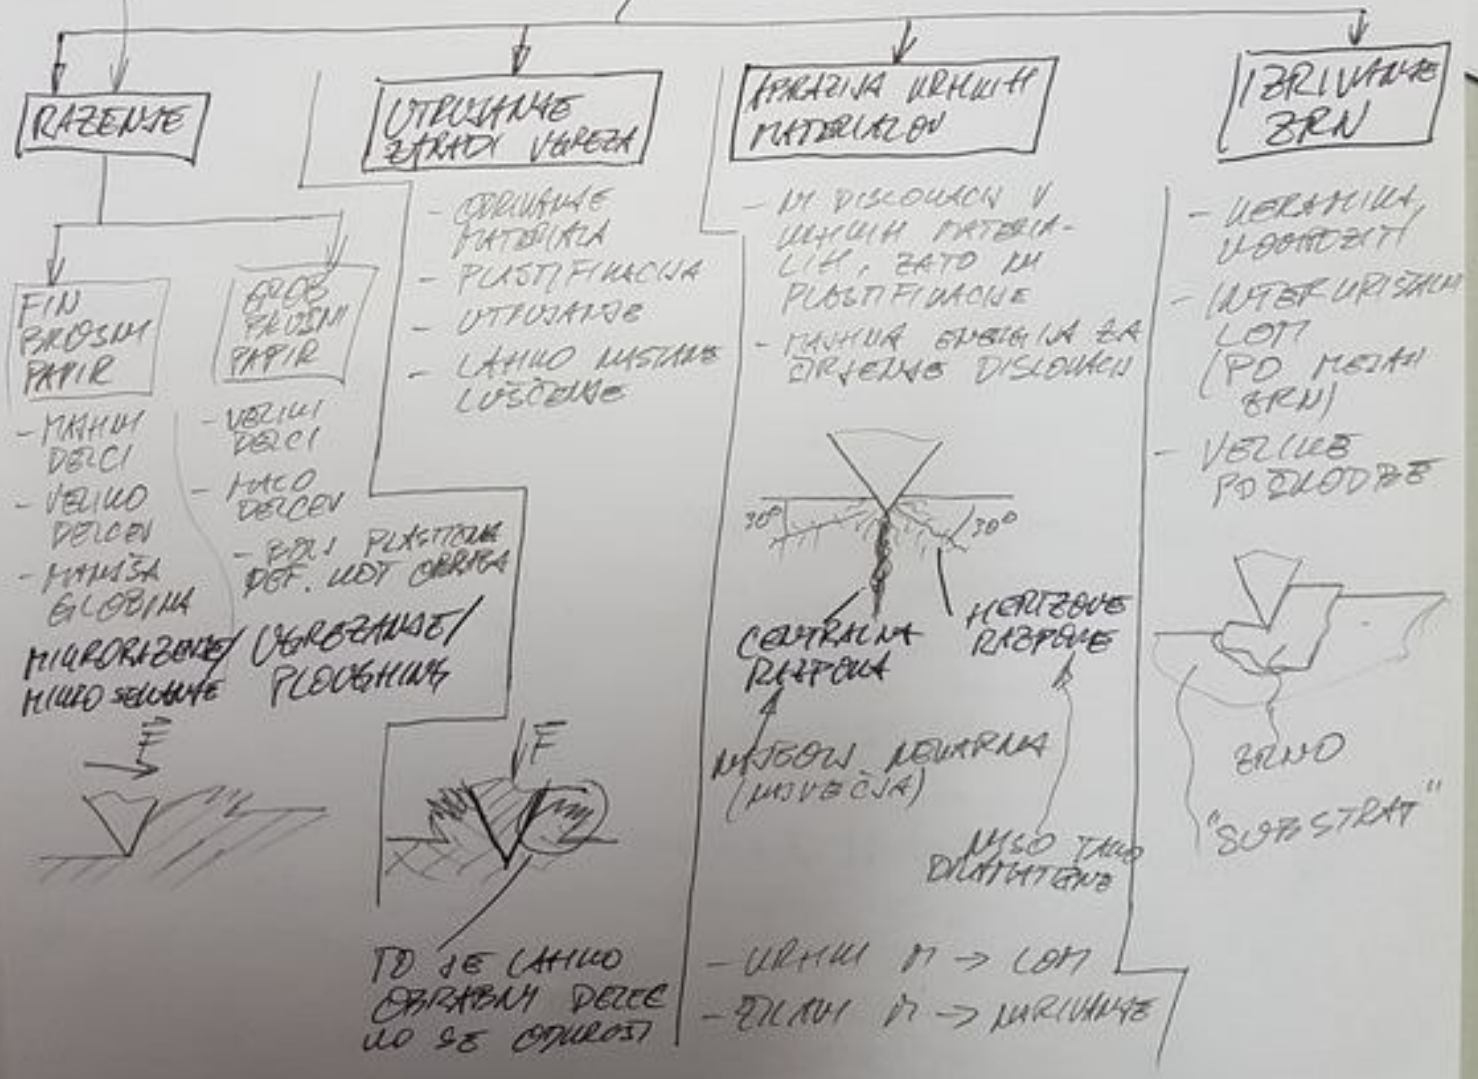 RAZENJE
FIN
BRUSNI
PAPIR
- MAJHNI
DELCI
- VELIKO
DELCEV
- MANJŠA
GLOBINA
MIKRORAZENJE/
MIKRO REZANJE
GROB
BRUSNI
PAPIR
- VELIKI
DELCI
- MALO
DELCEV
- BOLJ PLASTIČNA
DEF. KOT OBRABA
VGREZANJE/
PLOUGHING
F
UTRUJANJE
ZARADI VGREZA
- ODRIVANJE
MATERIALA
- PLASTIFIKACIJA
- UTRUJANJE
- LAHKO NASTANE
LUŠČENJE
F
TO JE LAHKO
OBRABNI DELEC
KO SE ODKRUŠI
ABRAZIJA KRHKIH
MATERIALOV
- NI DISLOKACIJ V
KRHKIH MATERIA-
LIH, ZATO NI
PLASTIFIKACIJE
- MAJHNA ENERGIJA ZA
ŠIRJENJE DISLOKACIJ
30°
30°
CENTRALNA
RAZPOKA
HERTZOVE
RAZPOKE
NAJBOLJ NEVARNA
(NAJVEČJA)
NISO TAKO
DRAMATIČNE
- KRHKI M → LOM
- ŽILAVI M → NARIVANJE
IZRIVANJE
ZRN
- KERAMIKA,
KOMPOZITI
- INTERKRISTALNI
LOM
(PO MEJAH
ZRN)
- VELIKE
POŠKODBE
ZRNO
"SUBSTRAT"